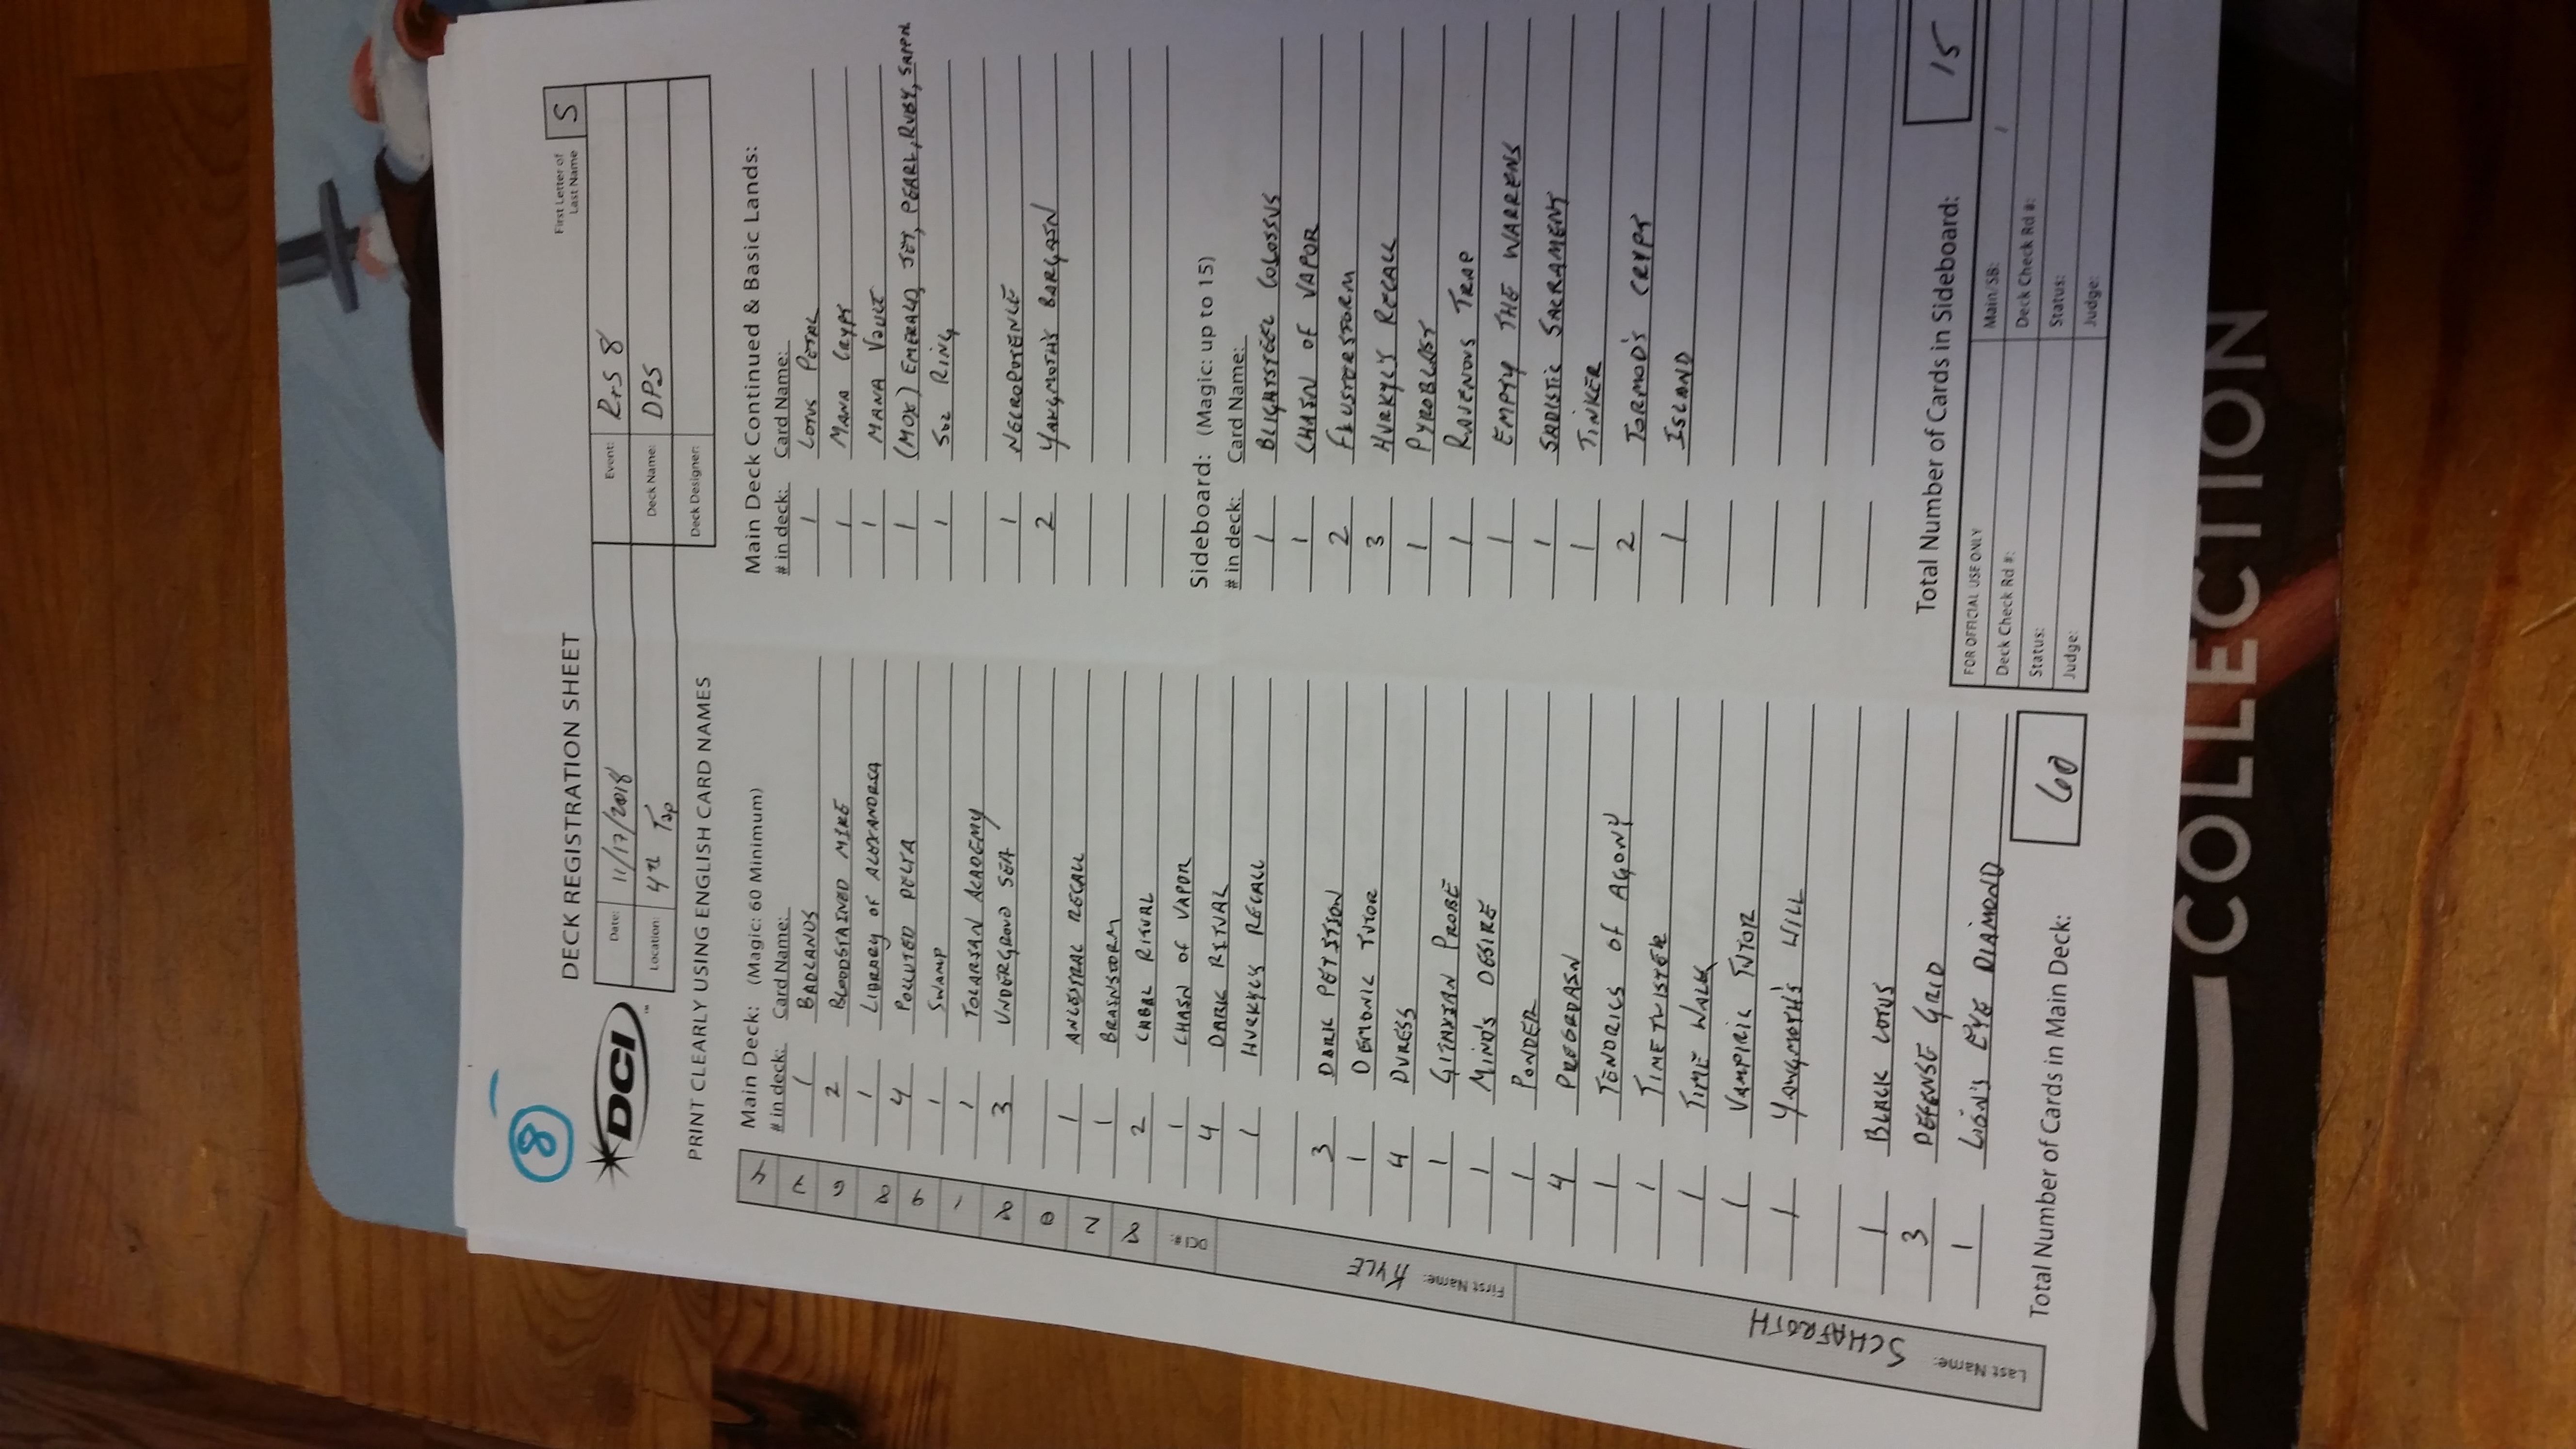 8
DECK REGISTRATION SHEET
First Letter of Last Name S
DCI
Date: 11/17/2018
Event: RtS 8
Location: 4th Tap
Deck Name: DPS
Deck Designer:
PRINT CLEARLY USING ENGLISH CARD NAMES
DCI #: 8 2 0 8 1 9 8 6 7 4
First Name: KYLE
Last Name: SCHAFROTH
Main Deck: (Magic: 60 Minimum)
# in deck: Card Name:
1 BADLANDS
2 BLOODSTAINED MIRE
1 LIBRARY OF ALEXANDRIA
4 POLLUTED DELTA
1 SWAMP
1 TOLARIAN ACADEMY
3 UNDERGROUD SEA
1 ANCESTRAL RECALL
1 BRAINSTORM
2 CABAL RITUAL
1 CHAIN OF VAPOR
4 DARK RITUAL
1 HURKYL'S RECALL
3 DARK PETITION
1 DEMONIC TUTOR
4 DURESS
1 GITAXIAN PROBE
1 MIND'S DESIRE
1 PONDER
4 PREORDAIN
1 TENDRILS OF AGONY
1 TIMETWISTER
1 TIME WALK
1 VAMPIRIC TUTOR
1 YAWGMOTH'S WILL
1 BLACK LOTUS
3 DEFENSE GRID
1 LION'S EYE DIAMOND
Total Number of Cards in Main Deck: 60
Main Deck Continued & Basic Lands:
# in deck: Card Name:
1 LOTUS PETAL
1 MANA CRYPT
1 MANA VAULT
1 (MOX) EMERALD, JET, PEARL, RUBY, SAPPH.
1 SOL RING
1 NECROPOTENCE
2 YAWGMOTH'S BARGAIN
Sideboard: (Magic: up to 15)
# in deck: Card Name:
1 BLIGHTSTEEL COLOSSUS
1 CHAIN OF VAPOR
2 FLUSTERSTORM
3 HURKYL'S RECALL
1 PYROBLAST
1 RAVENOUS TRAP
1 EMPTY THE WARRENS
1 SADISTIC SACRAMENT
1 TINKER
2 TORMOD'S CRYPT
1 ISLAND
Total Number of Cards in Sideboard: 15
FOR OFFICIAL USE ONLY
Main/SB: /
Deck Check Rd #:
Deck Check Rd #:
Status:
Status:
Judge:
Judge:
COLLECTION